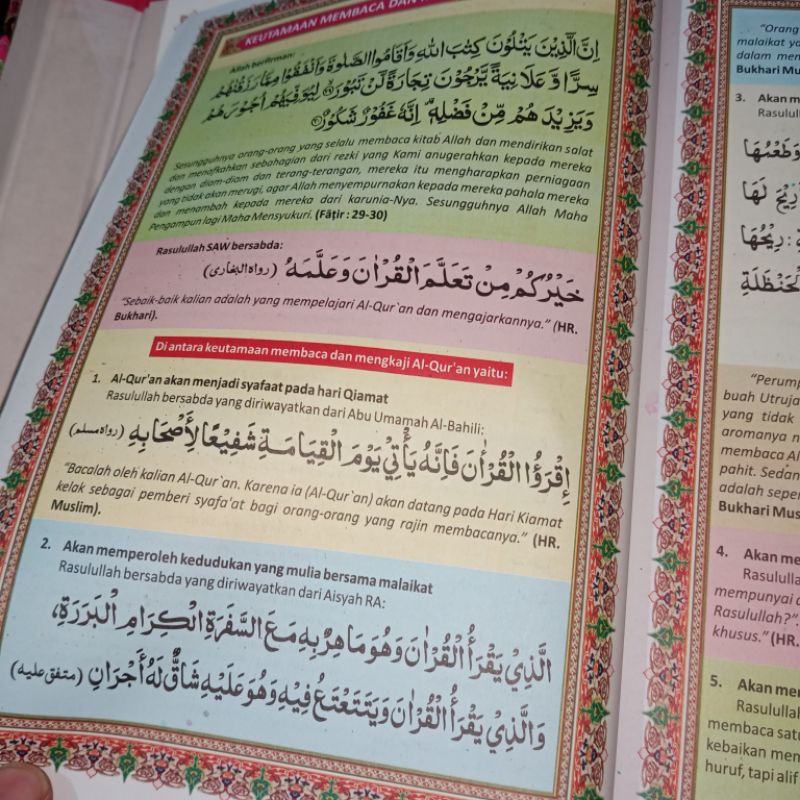 KEUTAMAAN MEMBACA DAN
Allah berfirman:
اِنَّ الَّذِيْنَ يَتْلُوْنَ كِتٰبَ اللّٰهِ وَاَقَامُوا الصَّلٰوةَ وَاَنْفَقُوْا مِمَّا رَزَقْنٰهُمْ
سِرًّا وَّعَلَانِيَةً يَّرْجُوْنَ تِجَارَةً لَّنْ تَبُوْرَ لِيُوَفِّيَهُمْ اُجُوْرَهُمْ
وَيَزِيْدَهُمْ مِّنْ فَضْلِهٖ اِنَّهٗ غَفُوْرٌ شَكُوْرٌ
Sesungguhnya orang-orang yang selalu membaca kitab Allah dan mendirikan salat
dan menafkahkan sebahagian dari rezki yang Kami anugerahkan kepada mereka
dengan diam-diam dan terang-terangan, mereka itu mengharapkan perniagaan
yang tidak akan merugi, agar Allah menyempurnakan kepada mereka pahala mereka
dan menambah kepada mereka dari karunia-Nya. Sesungguhnya Allah Maha
Pengampun lagi Maha Mensyukuri. (Fāṭir : 29-30)
Rasulullah SAW bersabda:
خَيْرُكُمْ مَنْ تَعَلَّمَ الْقُرْاٰنَ وَعَلَّمَهُ (رواه البخارى)
"Sebaik-baik kalian adalah yang mempelajari Al-Qur`an dan mengajarkannya." (HR.
Bukhari).
Di antara keutamaan membaca dan mengkaji Al-Qur'an yaitu:
1. Al-Qur'an akan menjadi syafaat pada hari Qiamat
Rasulullah bersabda yang diriwayatkan dari Abu Umamah Al-Bahili:
اِقْرَؤُا الْقُرْاٰنَ فَاِنَّهُ يَأْتِيْ يَوْمَ الْقِيَامَةِ شَفِيْعًا لِأَصْحَابِهِ (رواه مسلم)
"Bacalah oleh kalian Al-Qur`an. Karena ia (Al-Qur`an) akan datang pada Hari Kiamat
kelak sebagai pemberi syafa'at bagi orang-orang yang rajin membacanya." (HR.
Muslim).
2. Akan memperoleh kedudukan yang mulia bersama malaikat
Rasulullah bersabda yang diriwayatkan dari Aisyah RA:
الَّذِيْ يَقْرَأُ الْقُرْاٰنَ وَهُوَ مَاهِرٌ بِهِ مَعَ السَّفَرَةِ الْكِرَامِ الْبَرَرَةِ،
وَالَّذِيْ يَقْرَأُ الْقُرْاٰنَ وَيَتَتَعْتَعُ فِيْهِ وَهُوَ عَلَيْهِ شَاقٌّ لَهُ أَجْرَانِ (متفق عليه)
"Orang
malaikat ya
dalam mem
Bukhari Mu
3. Akan m
Rasulul
وَطَعْمُهَا
رِيْحَ لَهَا
رِيْحُهَا
الْحَنْظَلَةِ
"Perump
buah Utruja
yang tidak
aromanya m
membaca Al
pahit. Sedan
adalah sepe
Bukhari Mus
4. Akan me
Rasululla
mempunyai
Rasulullah?".
khusus." (HR.
5. Akan men
Rasulullah
membaca satu
kebaikan men
huruf, tapi alif